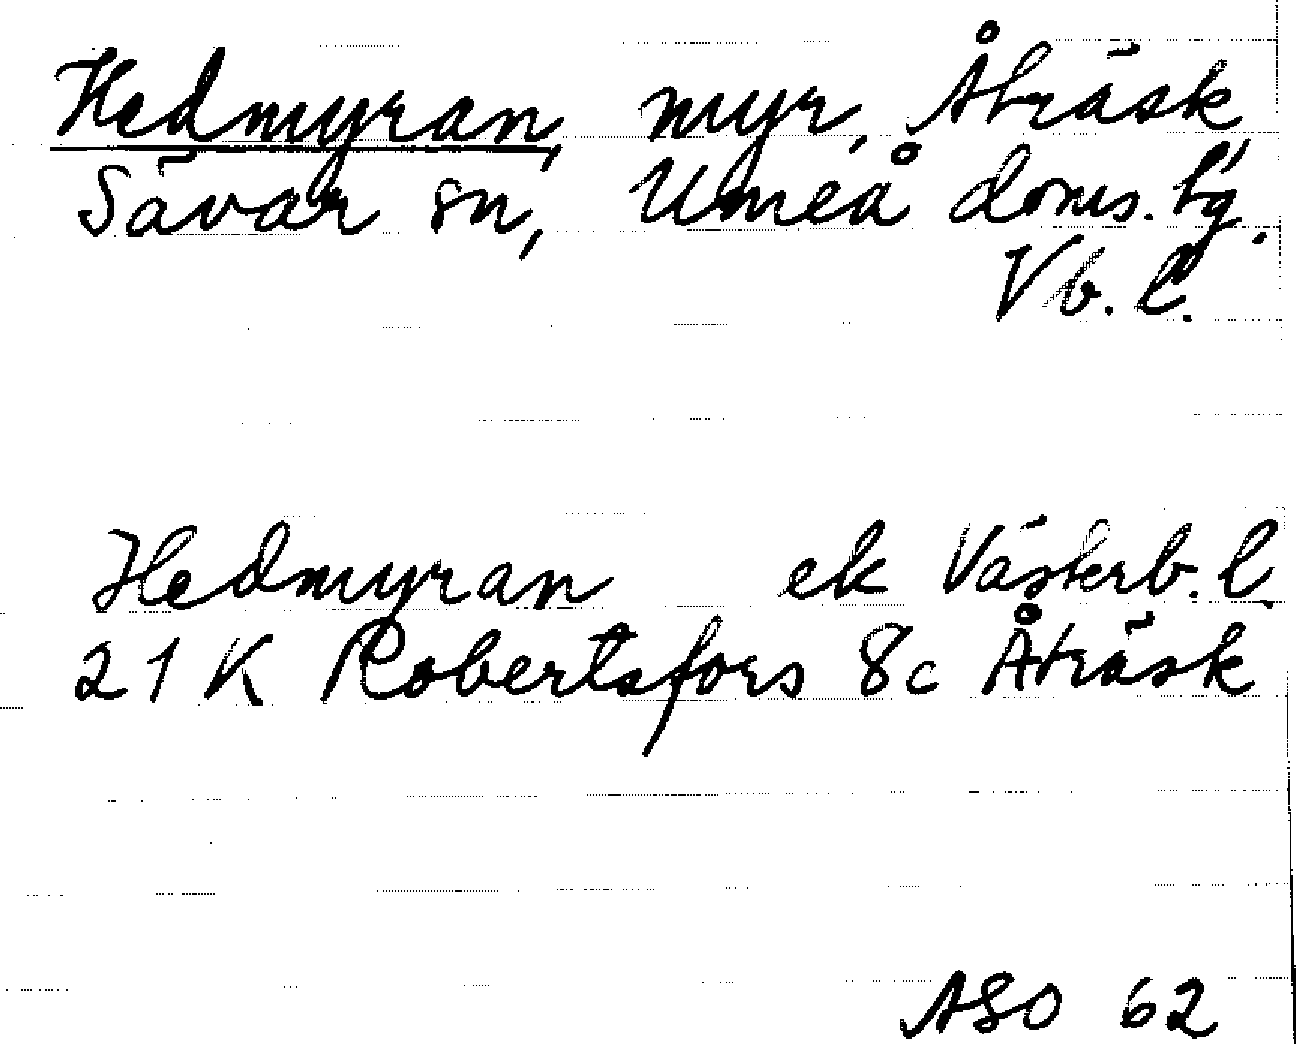 Hedmyran, myr, Åträsk,
Sävar sn, Umeå doms. hg.
Vb. l.
Hedmyran ek Västerb. l.
21 K Robertsfors 8c Åträsk
ASO 62